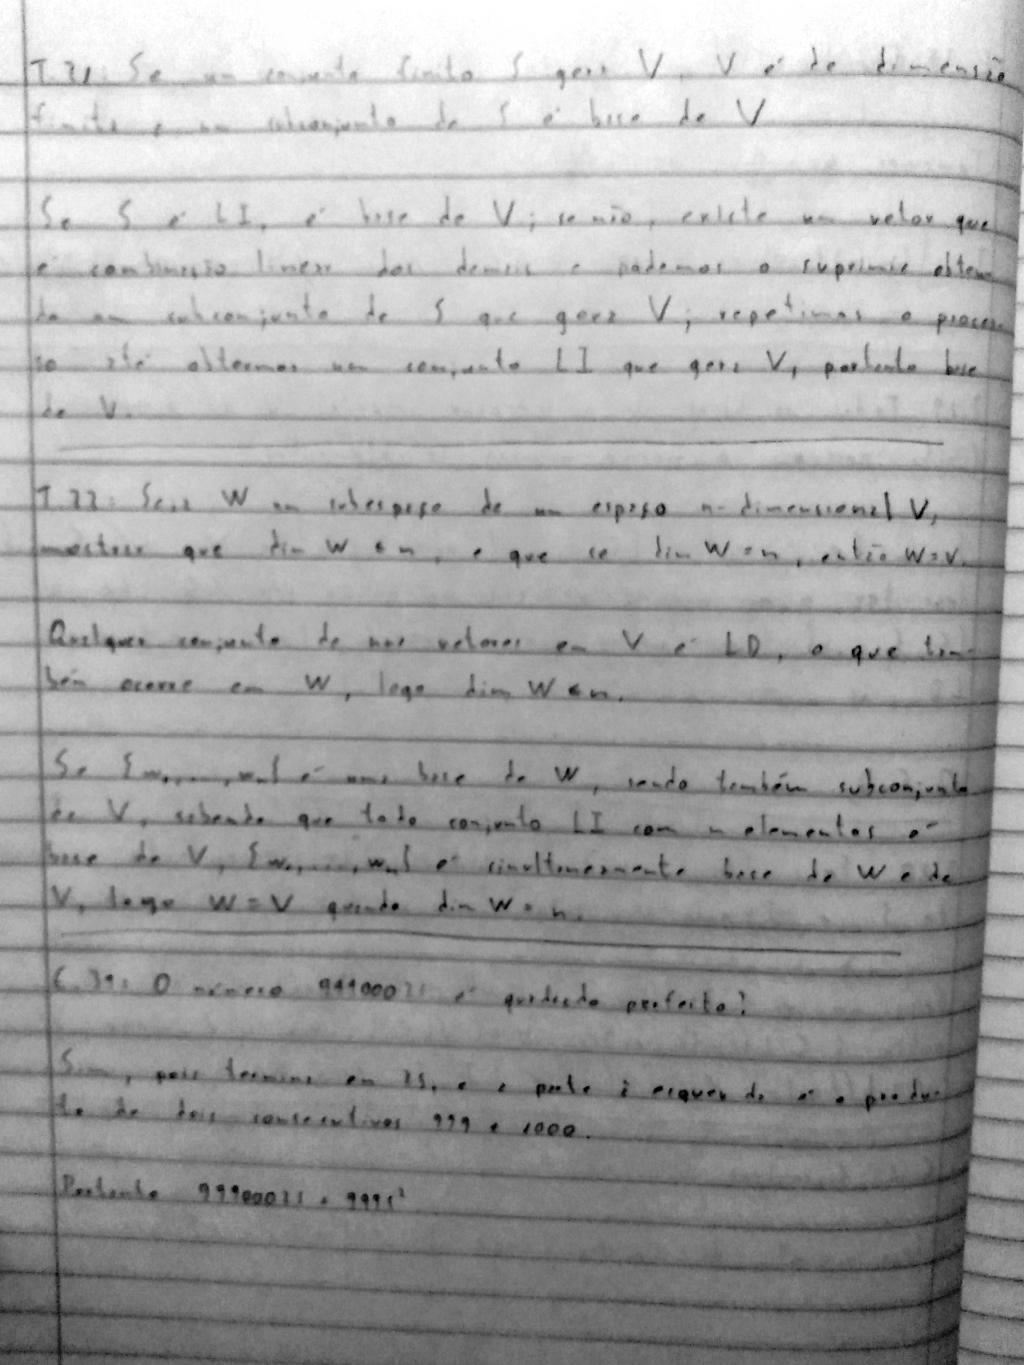 T.21: Se um conjunto finito S gera V, V é de dimensão
finita e um subconjunto de S é base de V
Se S é LI, é base de V; se não, existe um vetor que
é combinação linear dos demais e podemos o suprimir obten
do um subconjunto de S que gera V; repetimos o proces
so até obtermos um conjunto LI que gera V, portanto base
de V.
T.22: Seja W um subespaço de um espaço n-dimensional V,
mostrar que dim W ≤ n, e que se dim W = n, então W = V.
Qualquer conjunto de mais vetores em V é LD, o que tam-
bém ocorre em W, logo dim W ≤ n.
Se {w₁, ..., wₙ} é uma base de W, sendo também subconjunto
de V, sabendo que todo conjunto LI com n elementos é
base de V, {w₁, ..., wₙ} é simultaneamente base de W e de
V, logo W = V quando dim W = n.
O número 99900025 é quadrado perfeito?
Sim, pois termina em 25, e a parte à esquerda é o produ
to de dois consecutivos 999 e 1000.
Portanto 99900025 = 9995²